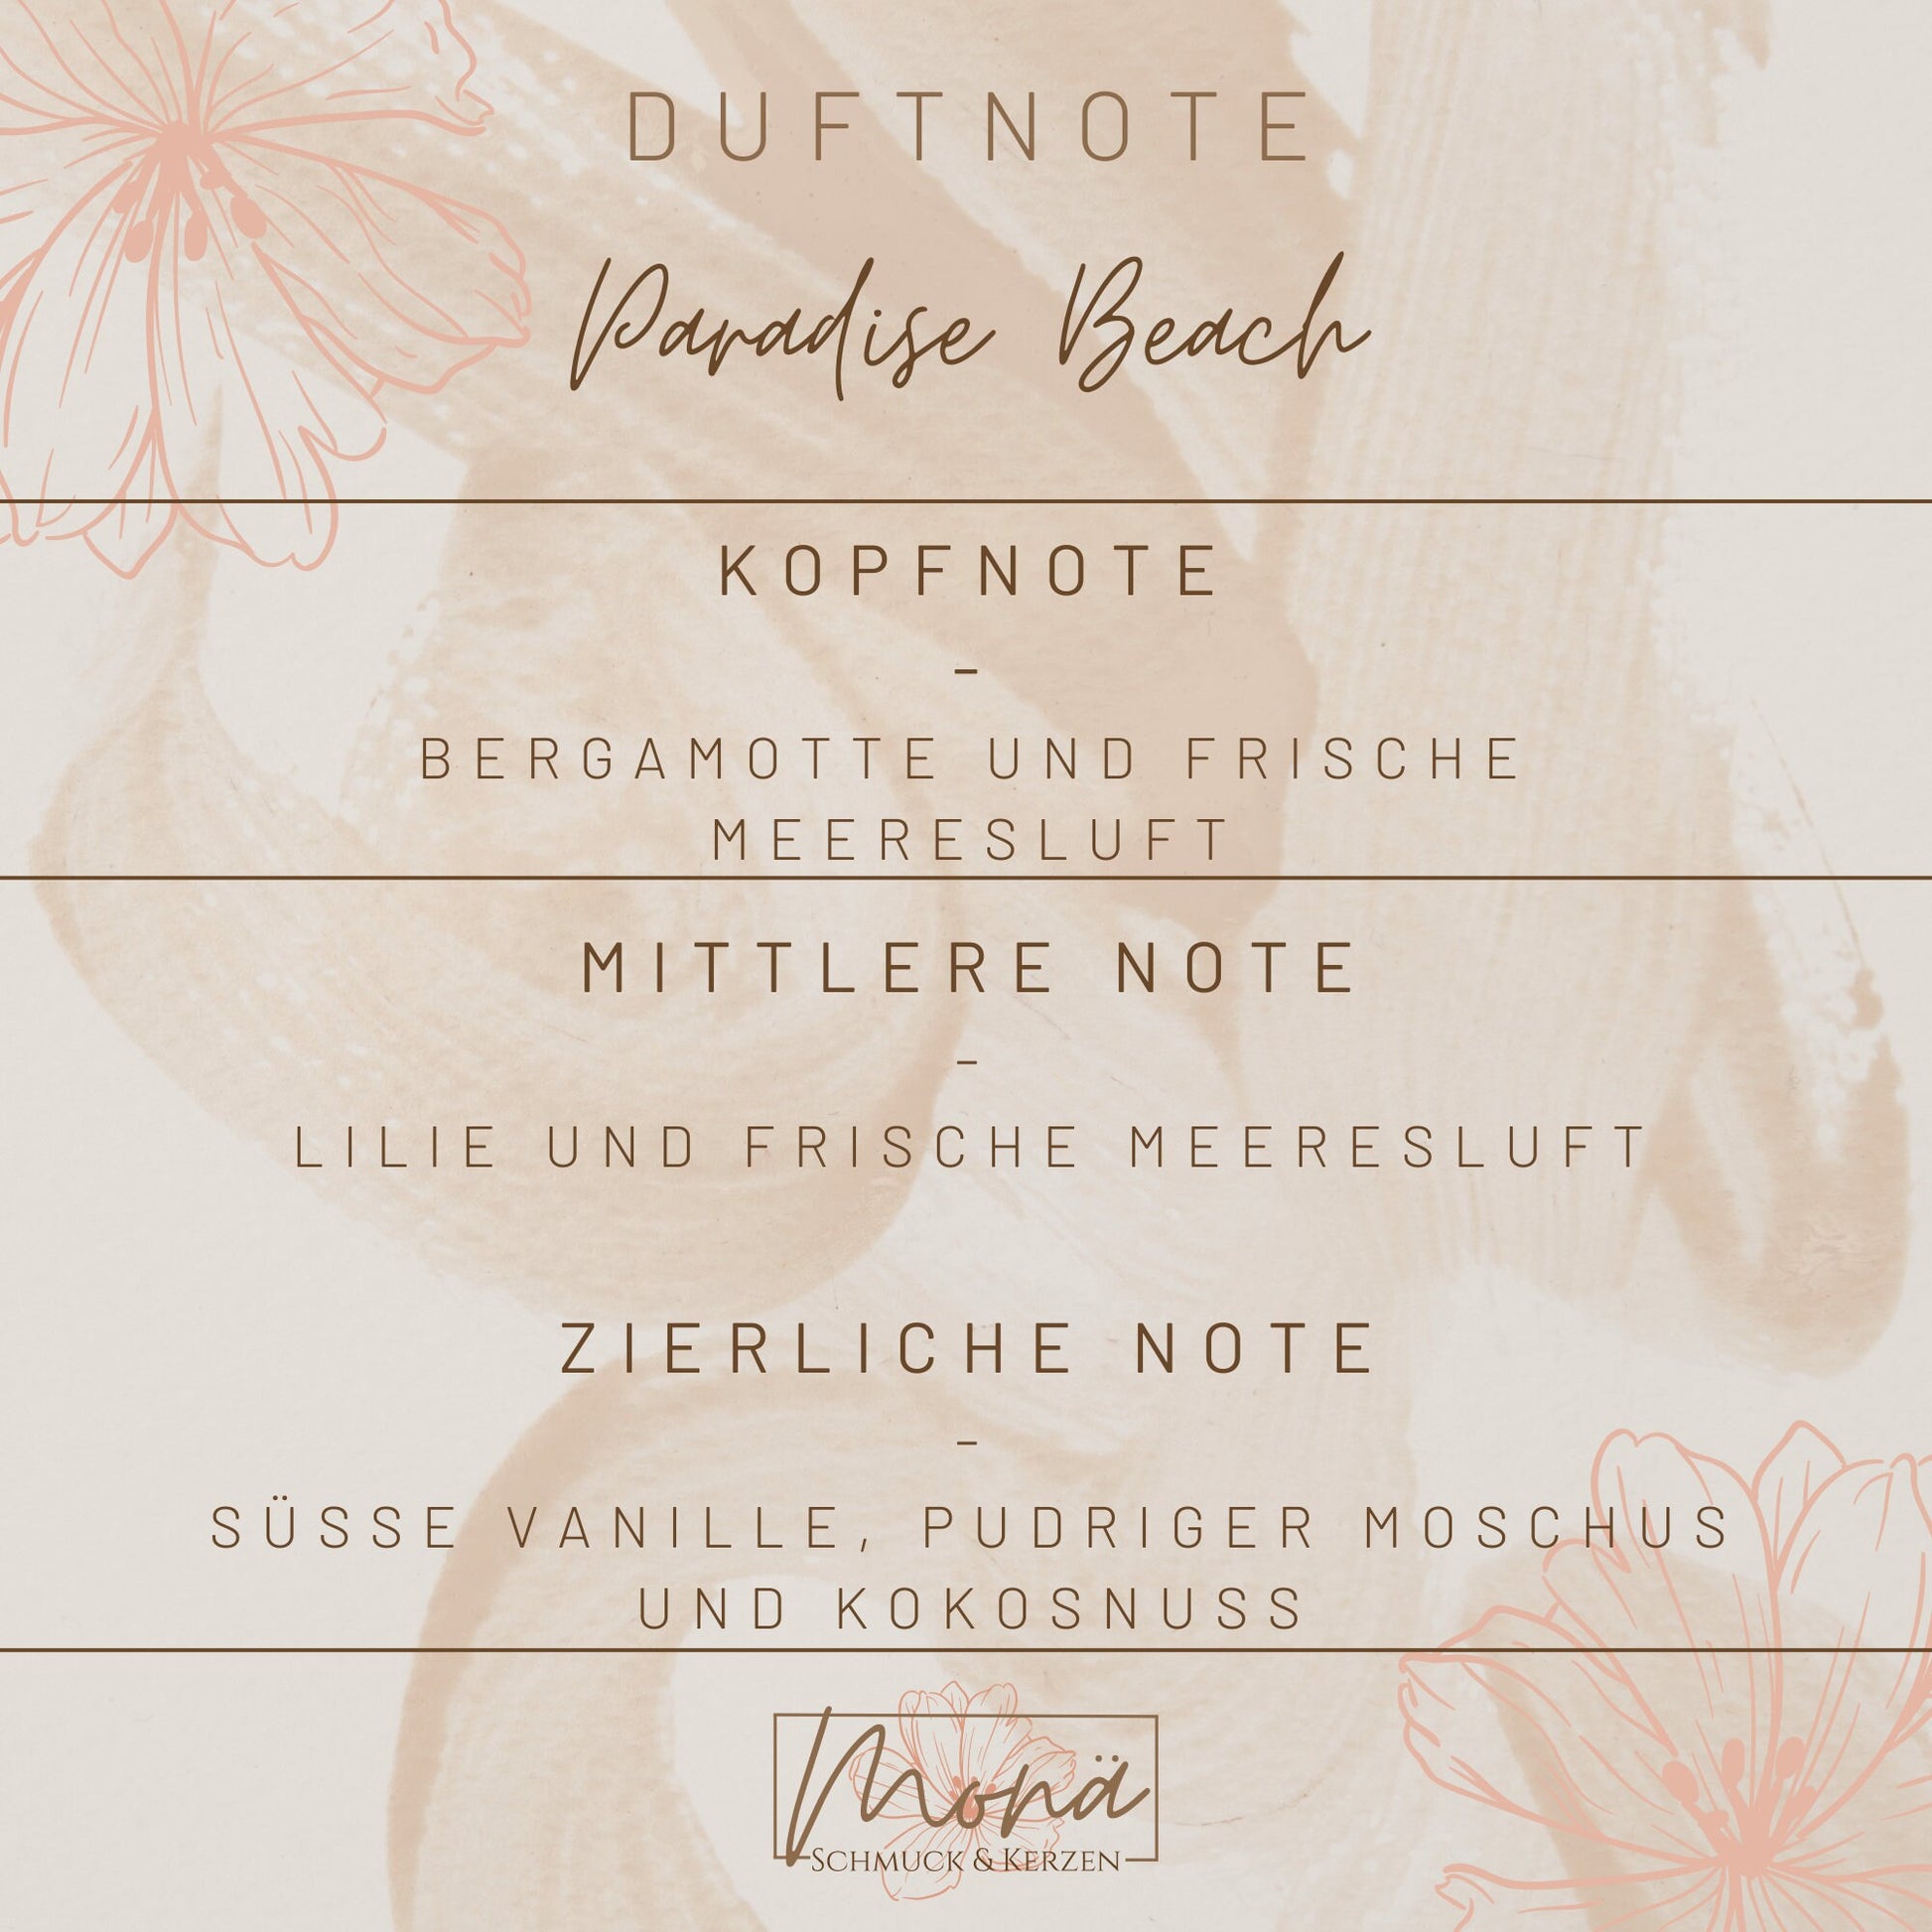 DUFTNOTE
Paradise Beach
KOPFNOTE
-
BERGAMOTTE UND FRISCHE
MEERESLUFT
MITTLERE NOTE
-
LILIE UND FRISCHE MEERESLUFT
ZIERLICHE NOTE
-
SÜSSE VANILLE, PUDRIGER MOSCHUS
UND KOKOSNUSS
Monä
SCHMUCK & KERZEN